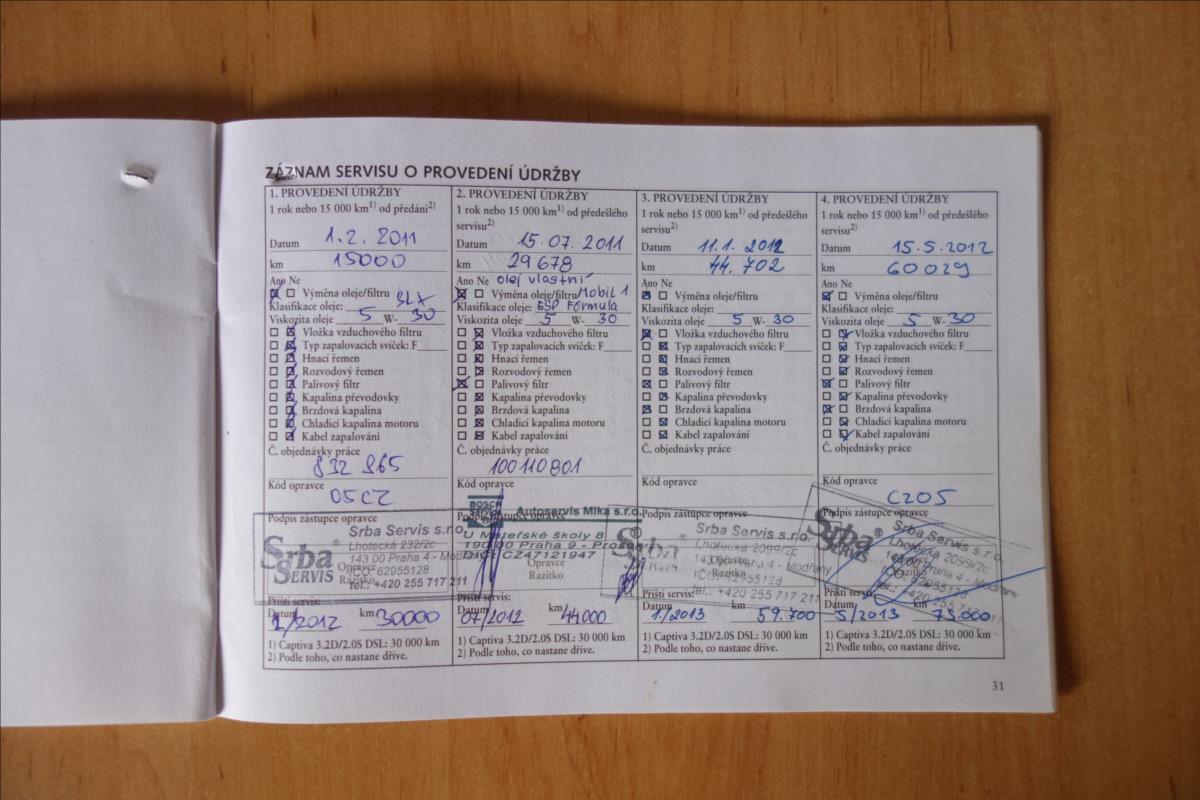 ZÁZNAM SERVISU O PROVEDENÍ ÚDRŽBY
1. PROVEDENÍ ÚDRŽBY
1 rok nebo 15 000 km1) od předání2)
Datum 1.2. 2011
km 15000
Ano Ne
Výměna oleje/filtru
Klasifikace oleje: SLX
Viskozita oleje 5 W- 30
Vložka vzduchového filtru
Typ zapalovacích svíček: F
Hnací řemen
Rozvodový řemen
Palivový filtr
Kapalina převodovky
Brzdová kapalina
Chladicí kapalina motoru
Kabel zapalování
Č. objednávky práce
832 865
Kód opravce
05CZ
Podpis zástupce opravce
Srba Servis s.r.o.
Lhotecká 232/2c
143 00 Praha 4 - Modřany
IČO: 62955128
Tel.: +420 255 717 211
Srba ®
SERVIS
Opravce
Razítko
Příští servis:
Datum 2/2012 km 30000
1) Captiva 3.2D/2.0S DSL: 30 000 km
2) Podle toho, co nastane dříve.
2. PROVEDENÍ ÚDRŽBY
1 rok nebo 15 000 km1) od předešlého
servisu2)
Datum 15.07. 2011
km 29678
Ano Ne olej vlastní
Výměna oleje/filtru Mobil 1
Klasifikace oleje: ESP Formula
Viskozita oleje 5 W- 30
Vložka vzduchového filtru
Typ zapalovacích svíček: F
Hnací řemen
Rozvodový řemen
Palivový filtr
Kapalina převodovky
Brzdová kapalina
Chladicí kapalina motoru
Kabel zapalování
Č. objednávky práce
100110801
Kód opravce
Podpis zástupce opravce
BOSCH
Autoservis Mika s.r.o.
U Mateřské školy 8
190 00 Praha 9 - Prosek
DIČ: CZ47121947
Opravce
Razítko
Příští servis:
Datum 07/2012 km 44000
1) Captiva 3.2D/2.0S DSL: 30 000 km
2) Podle toho, co nastane dříve.
3. PROVEDENÍ ÚDRŽBY
1 rok nebo 15 000 km1) od předešlého
servisu2)
Datum 11.1. 2012
km 44.702
Ano Ne
Výměna oleje/filtru
Klasifikace oleje:
Viskozita oleje 5 W- 30
Vložka vzduchového filtru
Typ zapalovacích svíček: F
Hnací řemen
Rozvodový řemen
Palivový filtr
Kapalina převodovky
Brzdová kapalina
Chladicí kapalina motoru
Kabel zapalování
Č. objednávky práce
Kód opravce
Podpis zástupce opravce
Srba Servis s.r.o.
Lhotecká 2099/2c
143 00 Praha 4 - Modřany
IČO: 62955128
tel.: +420 255 717 211
Srba ®
SERVIS
Opravce
Razítko
Příští servis:
Datum 1/2013 km 59.700
1) Captiva 3.2D/2.0S DSL: 30 000 km
2) Podle toho, co nastane dříve.
4. PROVEDENÍ ÚDRŽBY
1 rok nebo 15 000 km1) od předešlého
servisu2)
Datum 15.5.2012
km 60029
Ano Ne
Výměna oleje/filtru
Klasifikace oleje:
Viskozita oleje 5 W- 30
Vložka vzduchového filtru
Typ zapalovacích svíček: F
Hnací řemen
Rozvodový řemen
Palivový filtr
Kapalina převodovky
Brzdová kapalina
Chladicí kapalina motoru
Kabel zapalování
Č. objednávky práce
Kód opravce
CZ05
Podpis zástupce opravce
Srba Servis s.r.o.
Lhotecká 2099/2c
Praha 4 - Modřany
62955128
tel.: +420 255 717
Srba ®
SERVIS
Razítko
Příští servis:
Datum 5/2013 km 75.000
1) Captiva 3.2D/2.0S DSL: 30 000 km
2) Podle toho, co nastane dříve.
31